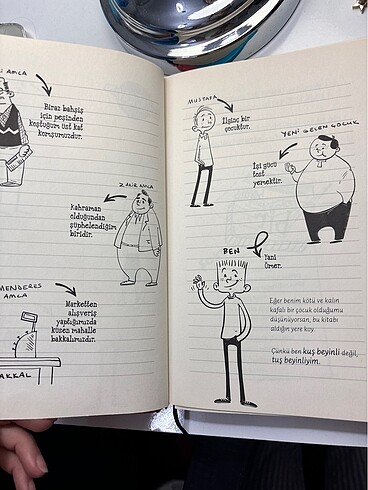 AMCA
Biraz bahşiş
için peşinden
koştuğum üst kat
komşumuzdur.
ZAKİR AMCA
Kahraman
olduğundan
şüphelendiğim
biridir.
MENDERES
AMCA
Marketten
alışveriş
yaptığımızda
küsen mahalle
bakkalımızdır.
AKKAL
MUSTAFA
İlginç bir
çocuktur.
YENİ GELEN ÇOCUK
İşi gücü
tost
yemektir.
BEN
Yani
Ömer.
Eğer benim kötü ve kalın
kafalı bir çocuk olduğumu
düşünüyorsan, bu kitabı
aldığın yere koy.
Çünkü ben kuş beyinli değil,
tuş beyinliyim.